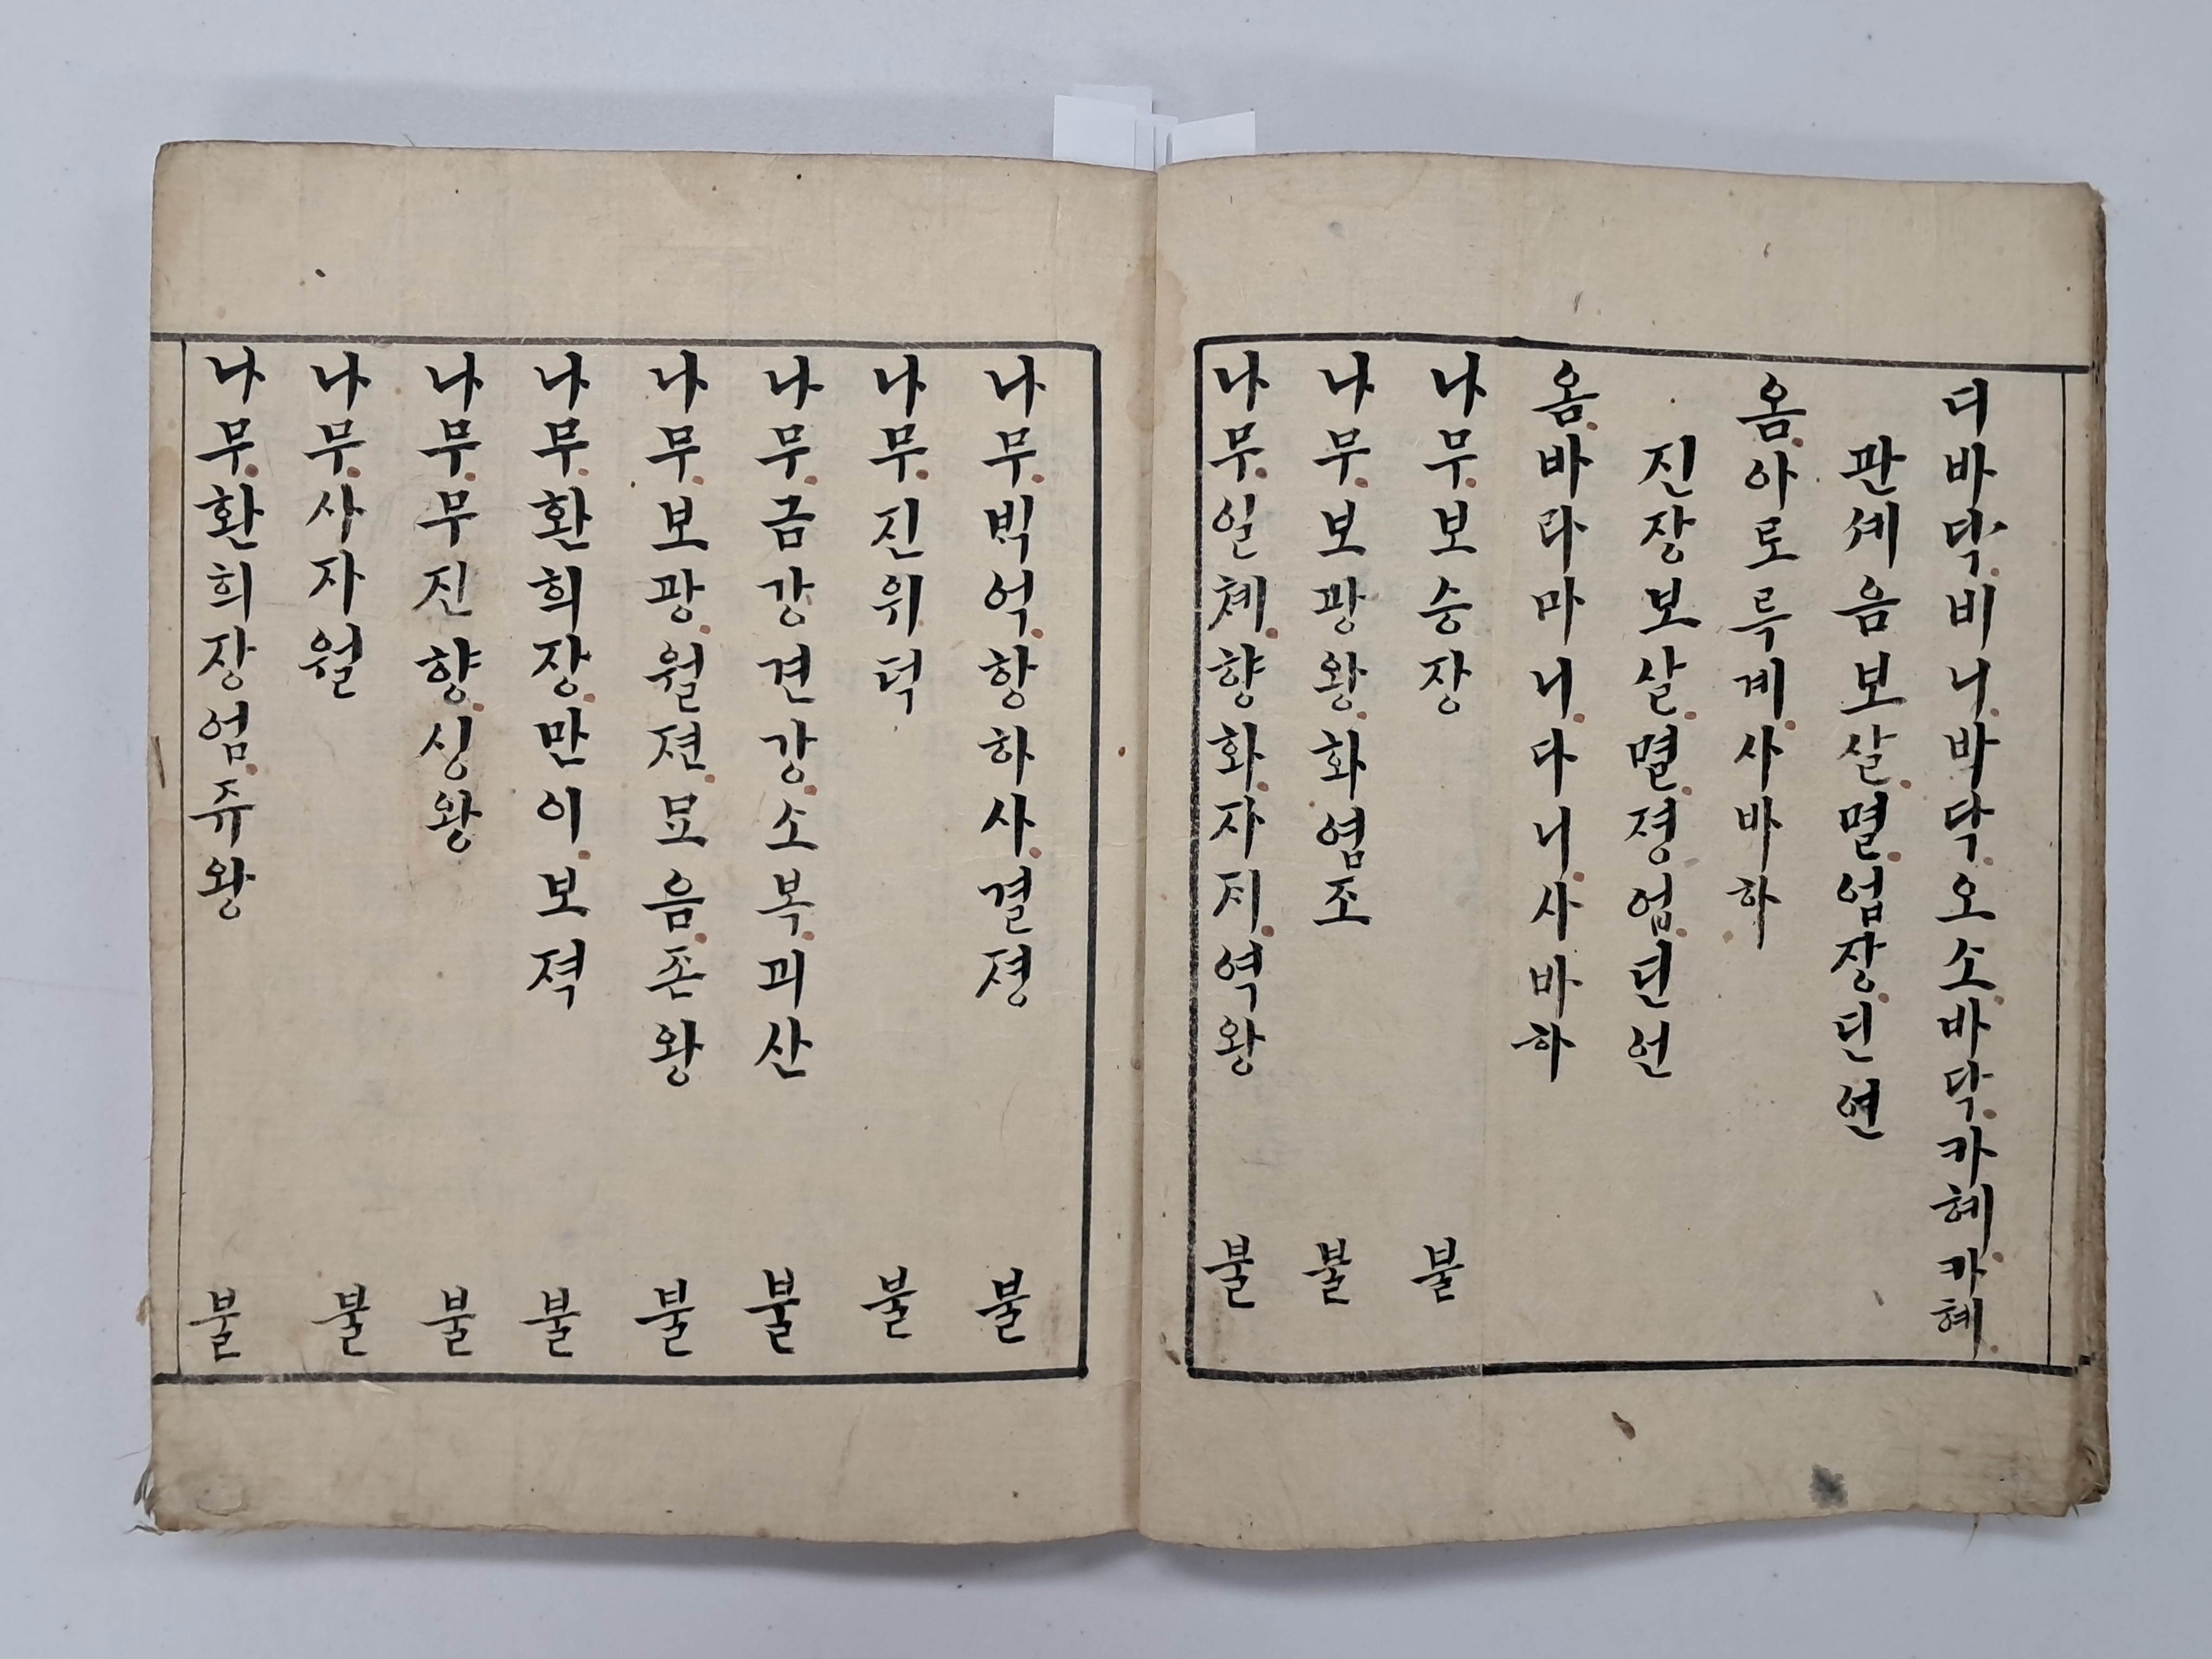 디바닥비니바닥오소바닥카혜카혜
관셰음보살멸업장딘언
옴아로륵계사바하
진장보살멸졍업딘언
옴바라마니다니사바하
나무보승장 불
나무보광왕화염조 불
나무일쳬향화자지역왕 불
나무빅억항하사결졍 불
나무진위덕 불
나무금강견강소복괴산 불
나무보광월젼묘음존왕 불
나무환희장만이보젹 불
나무무진향싱왕 불
나무사자월 불
나무환희장엄쥬왕 불